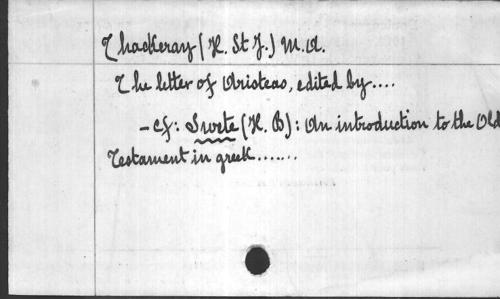 Thackeray (H. St J.) M.A.
The letter of Aristeas, edited by....
- cf: Swete (H. B): An introduction to the Old
Testament in greek.......